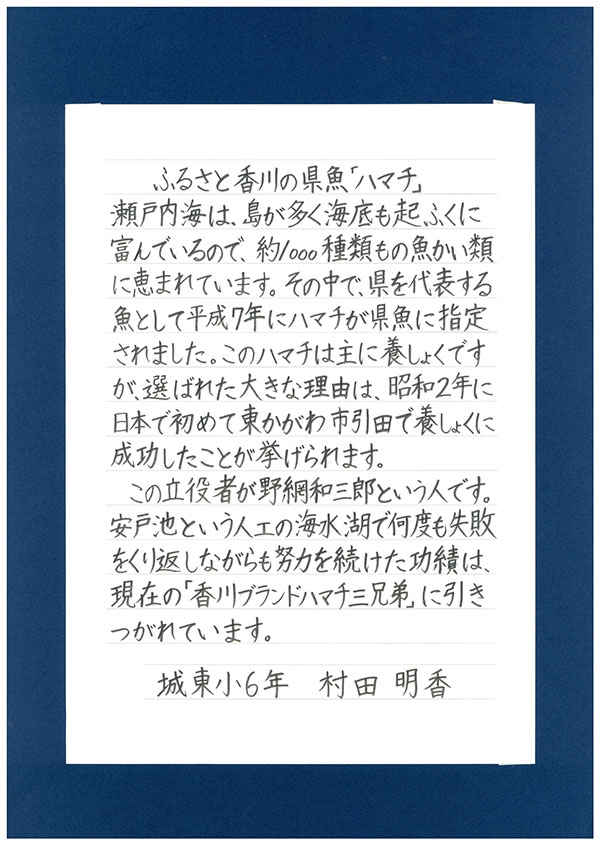 ふるさと香川の県魚「ハマチ」
瀬戸内海は、島が多く海底も起ふくに
富んでいるので、約1000種類もの魚かい類
に恵まれています。その中で、県を代表する
魚として平成7年にハマチが県魚に指定
されました。このハマチは主に養しょくです
が、選ばれた大きな理由は、昭和2年に
日本で初めて東かがわ市引田で養しょくに
成功したことが挙げられます。
この立役者が野網和三郎という人です。
安戸池という人工の海水湖で何度も失敗
をくり返しながらも努力を続けた功績は、
現在の「香川ブランドハマチ三兄弟」に引き
つがれています。
城東小6年 村田 明香